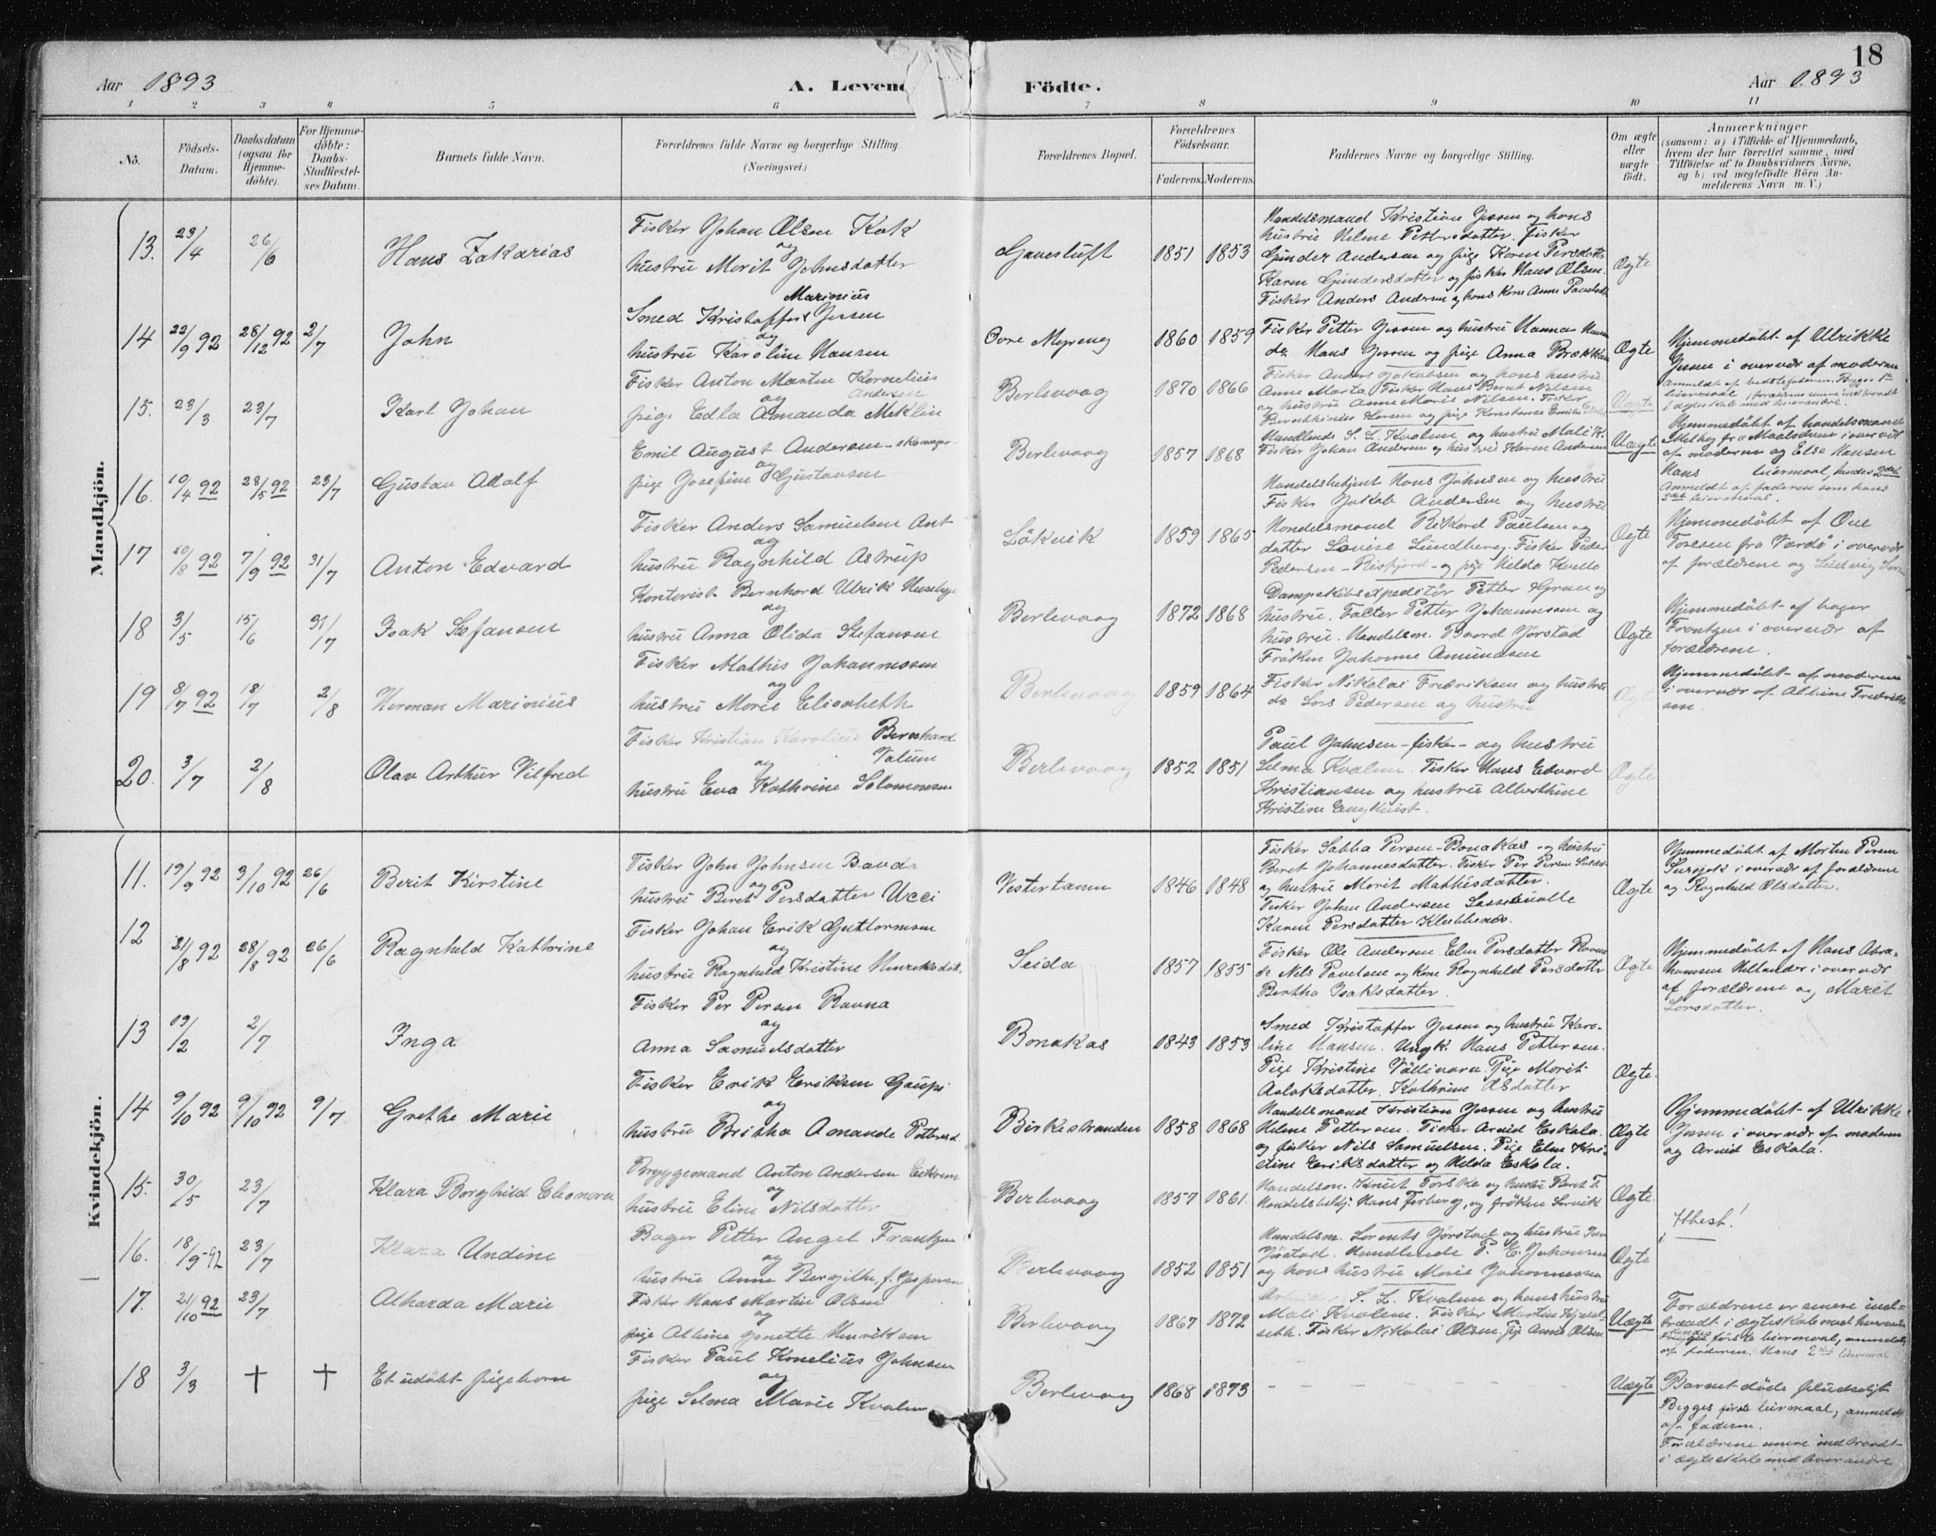 18
Aar 1893
A. Levend
Födte.
Aar 1893
1 2 3 4 5 6 7 8 9 10 11
No.
Födsels-
Datum.
Daabsdatum
(ogsaa for
Hjemme-
döbte).
For Hjemme-
döbte:
Daabs-
Stadfæstel-
ses Datum.
Barnets fulde Navn.
Forældrenes fulde Navne og borgerlige Stilling.
(Næringsvei.)
Forældrenes Bopæl.
Forældrenes
Födselsaar.
Faderens. Moderens.
Faddernes Navne og borgerlige Stilling.
Om ægte
eller
uægte
födt.
Anmærkninger
(saasom: a) i Tilfælde af Hjemmedaab,
hvem der har forrettet samme, med
Tilföielse af to Daabsvidners Navne,
og b) ved uægtefödte Börn An-
melderens Navn m. V.)
Mandkjön.
13. 23/4 26/6 Hans Zakarias
Fisker Johan Olsen Kok
og
hustru Morit Johnsdatter
1851 1853
Handelsmand Kristian Jessen og hans
hustru Helene Pettersdatter. fisker
Gunder Andersen og pige Karen Persdatter
Karen Gundersdatter og fisker Hans Olsen.
Fisker Anders Andersen og hans kone Anne
Ægte
14 22/9 92 28/12 92 2/7 John
Marinius
Smed Kristoffer Jessen
og
hustru Karoline Hansen
1860 1859
Fisker Petter Jessen og hustru Hanna
do Hans Jessen og pige Anna
Ægte
Hjemmedöbt af Ulrikke
Jessen i overvær af moderen
15. 23/3 23/7 Karl Johan
Fisker Anton Martin Kornelius
Andersen
og
pige Edla Amanda Meklin
Berlevaag 1870 1866
Fisker Anders Jakobsen og hans hustru
Anne Marta. Fisker Hans Bernt Nilsen
og hustru Anne Marie Nilsen. Fisker
Uægte
16. 19/4 92 28/5 92 23/7 Gustav Adolf
Emil August Andersen - skomager
og
pige Josefine Gustavsen
Berlevaag 1857 1868
Handlende S. L. Kvalen og hustru Mali K.
Fisker Johan Andersen og hustru Karen Andersen
Uægte
Hjemmedöbt af handelsmand
af moderen og Else Hansen
Hans leiermaal, hendes 2det
Anmeldt af faderen som hans
leiermaal.
17 10/8 92 7/9 92 31/7 Anton Edvard
Fisker Anders Samuelsen Ant
og
hustru Ragnhild Astrup
Lökvik 1859 1865
Handelsbetjent Hans Johnsen og hustru
Fisker Jakob Andersen og hustru
Handelsmand Rikard Paulsen og
datter Lovise Lundberg. Fisker Peder
Pedersen - Risfjord - og pige Helda Kvello
Ægte
Hjemmedöbt af Ove
Toresen fra Vardö i overvær
af forældrene og Ludvig
18 3/5 15/6 31/7 Isak Stefansen
Kontorist Bernhard Ulrik
og
hustru Anna Olida Stefansen
Berlevaag 1872 1868
Dampskibsexpeditör Petter Gran og
hustru. Faktor Petter Johannesen og
hustru. Handelsm. Baard Jörstad
Fröken Johanne Amundsen
Ægte
Hjemmedöbt af bager
Frantzen i overvær af
forældrene.
19 8/7 92 18/7 2/8 Herman Marinius
Fisker Mathis Johannessen
og
hustru Marie Elisabeth
Berlevaag 1859 1864
Fisker Nikolai Fredriksen og hustru
do Lars Pedersen og hustru
Ægte
Hjemmedöbt af moderen
i overvær af Albine Fredrik-
sen.
20. 3/7 2/8 Olav Arthur Vilfred
Fisker Kristian Karolius Bernhard
Valum
og
hustru Eva Kathrine Salomonsen
Berlevaag 1852 1851
Paul Johnsen - fisker - og hustru
Selma Kvalen. Fisker Hans Edvard
Kristiansen og hustru Alberthine
Kristine Engkvist.
Ægte
Kvindekjön.
11. 19/9 92 3/10 92 26/6 Berit Kirstine
Fisker John Johnsen Banda
og
hustru Beret Persdatter Ucci
Vestertana 1846 1848
Fisker Sabba Persen - Bonakas - og hustru
Beret Johannesdatter. Fisker Per Persen
og hustru Morit Mathisdatter.
Fisker Johan Andersen
Karen Persdatter Klubbenæs.
Ægte
Hjemmedöbt af Morten Persen
i overvær af forældrene
og Ragnhild Olsdatter.
12 21/8 92 28/8 92 26/6 Ragnhild Kathrine
Fisker Johan Erik Guttormsen
og
hustru Ragnhild Kristine Henriksdat.
Seida 1857 1855
Fisker Ole Andersen. Elen Persdatter Ravna
do Nils Paulsen og kone Ragnhild Persdatter
Bertha Isaksdatter.
Ægte
Hjemmedöbt af Hans Abra-
hamsen Hellander i overvær
af forældrene og Marit
Larsdatter.
13 19/2 2/7 Inga
Fisker Per Persen Ravna
og
Anna Samuelsdatter
Bonakas 1843 1853
Smed Kristoffer Jessen og hustru Karo-
line Hansen. Ungk. Hans Pettersen.
Pige Kristine Vallivara. Pige Morit
Aslaksdatter. Kathrine Olsdatter
Ægte.
14 9/10 92 9/10 92 9/7 Grethe Marie
Fisker Erik Eriksen Gaup
og
hustru Britha Amanda
Birkestranden 1858 1868
Handelsmand Kristian Jessen og hustru
Helene Pettersen. Fisker Arvid Eskola.
og fisker Nils Samuelsen. Pige Elen Kri-
stine Eriksdatter og Helda Eskola.
Ægte
Hjemmedöbt af Ulrikke
Jessen i overvær af moderen
og Arvid Eskola.
15. 30/5 23/7 Klara Borghild Eleonora
Bryggemand Anton Andersen
og
hustru Eline Nilsdatter
Berlevaag 1857 1861.
Handelsm. Knut Torske og hustru Beret T.
Handelsbetj. Hans Forberg, og fröken
Ægte.
16. 18/9-92 23/7 Klara Undine
Bager Petter Angel Frantzen
og
hustru Anne Bergithe, f. Jespersen
Berlevaag 1852 1851
Handelsm. Lorents Jörstad og hustru
Jörstad. Handlende P. E. Johansen
og hans hustru Marie Johannessen
Ægte
Attest!
17. 21/10 92 23/7 Alharda Marie
Fisker Hans Martin Olsen
og
pige Albine Janette Henriksen
Berlevaag 1867 1872
S. L. Kvalen og hans hustru
Mali Kvalen. Fisker Martin
Fisker Nikolai Olsen. Pige Anne Olsen
Uægte
Forældrene er senere ind-
traadt i ægteskab med hverandre
förste leiermaal, anmeldt
af faderen. Hans 2det leiermaal
18 3/3 † † Et udöbt pigebarn
Fisker Paul Kornelius Johnsen
og
pige Selma Marie Kvalen
Berlevaag 1868 1873
- - - - - - -
Uægte
Barnet döde pludseligt
Begges förste leiermaal, anmeldt
af faderen.
Forældrene senere indtraadt
i ægteskab med hverandre